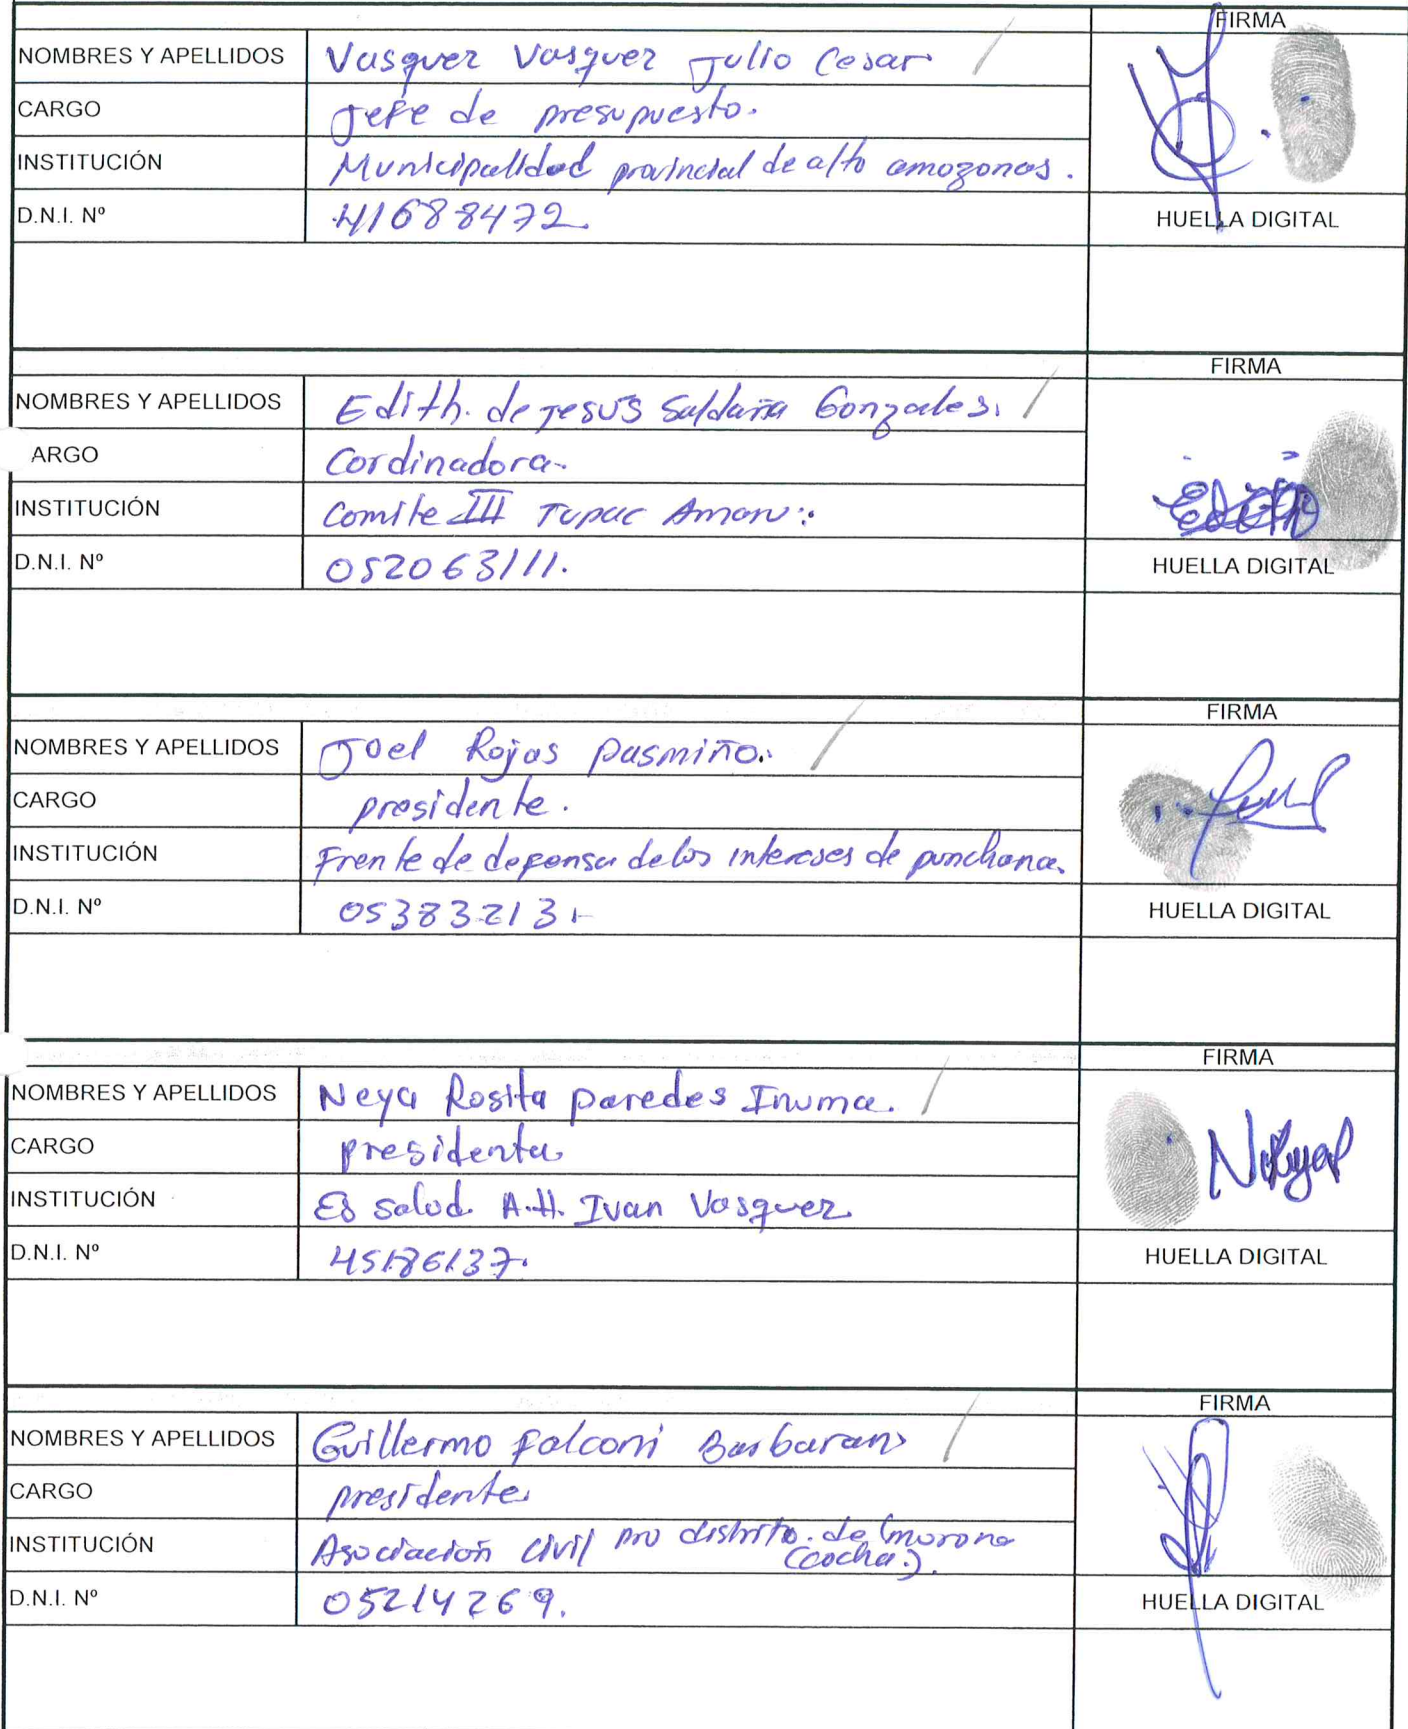 FIRMA
NOMBRES Y APELLIDOS Vasquez Vasquez Julio Cesar
CARGO Jefe de presupuesto.
INSTITUCIÓN Municipalidad provincial de alto amazonas.
D.N.I. Nº 41688472. HUELLA DIGITAL
FIRMA
NOMBRES Y APELLIDOS Edith. de Jesús Saldaña Gonzales.
ARGO Cordinadora.
INSTITUCIÓN Comite III Tupac Amaru.
Edith
D.N.I. Nº 052063111. HUELLA DIGITAL
FIRMA
NOMBRES Y APELLIDOS Joel Rojas pasmiño.
CARGO presidente.
INSTITUCIÓN Frente de defensa de los intereses de punchana.
D.N.I. Nº 05383213 HUELLA DIGITAL
FIRMA
NOMBRES Y APELLIDOS Neya Rosita paredes Inuma.
CARGO presidenta
INSTITUCIÓN Es salud. A.H. Ivan Vasquez
D.N.I. Nº 45186137. HUELLA DIGITAL
FIRMA
NOMBRES Y APELLIDOS Guillermo falconi Barbaran
CARGO presidente
INSTITUCIÓN Asociación civil pro distrito. de (morona
(cocha.).
D.N.I. Nº 05214269. HUELLA DIGITAL